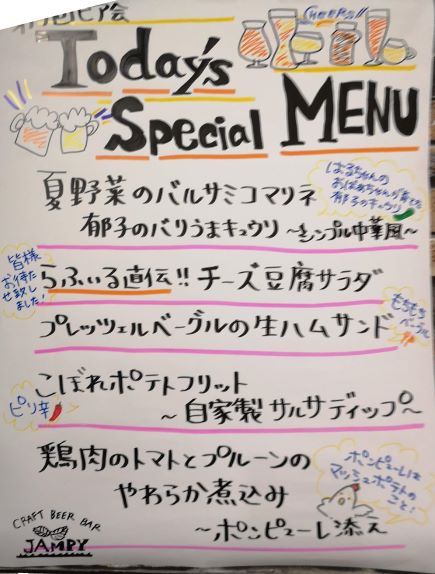 CHEERS!!
Today's
Special MENU
夏野菜のバルサミコマリネ
はるちゃんの
おばあちゃんが育てた
郁子のキュウリ
郁子のバリうまキュウリ ~シンプル中華風~
皆様
お待たせ致し
ました!
らふぃる直伝!! チーズ豆腐サラダ
プレッツェルベーグルの生ハムサンド
もちもち
ベーグル
こぼれポテトフリット
ピリ辛
~自家製サルサディップ~
鶏肉のトマトとプルーンの
やわらか煮込み
~ポンピューレ添え
ポンピューレは
マッシュポテトの
こと!
CRAFT BEER BAR
JAMPY